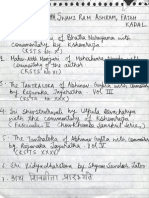 Swami Ram Ashram, Fateh
Kadal.
of Bhatta Narayana with
commentary by Kshemraja
(KSTS No X)
2. Maharatha Manjari of Maheshwara Nanda with
commentary of the author
(KSTS No XI)
3. The Tantraloka of Abhinav Gupta with commentary
by Rajanaka Jayaratha Vol III
(KSTS No XXX)
4. Shivastotravali by Utpala Devacharya
with the commentary of Kshemraja
Fasciculi II Chowkhamba Sanskrit series,
5. The Tantraloka of Abhinav Gupta with comments
by Rajanaka Jayaratha Vol IV
(KSTS No XXXVI)
by Shyam Sundar Lal